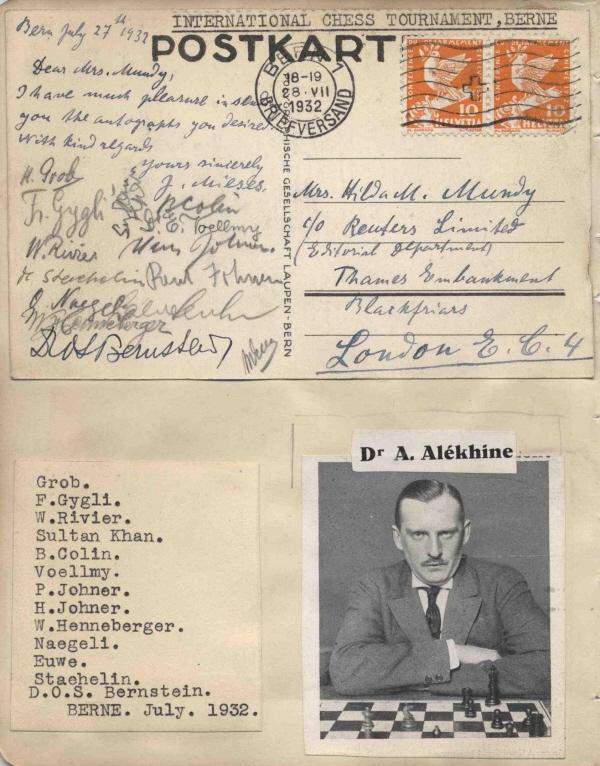 INTERNATIONAL CHESS TOURNAMENT, BERNE
Bern July 27th 1932
POSTKART
Dear Mrs. Mundy,
I have much pleasure in
you the autographs you desired
With kind regards
Yours sincerely
J. Mieses.
H. Grob
Fr. Gygli
B Colin
E. Voellmy
W. Rivier
Hans Johner.
Staehelin
Paul Johner
Naegeli
W. Henneberger
Dr OS Bernstein
BERN 1
18-19
28. VII
1932
BRIEFVERSAND
10
HELVETIA
10
HELVETIA
GESELLSCHAFT LAUPEN-BERN
Mrs. Hilda M. Mundy
c/o Reuters Limited
(Editorial Department)
Thames Embankment
Blackfriars
London E.C.4
Grob.
F.Gygli.
W.Rivier.
Sultan Khan.
B.Colin.
Voellmy.
P.Johner.
H.Johner.
W.Henneberger.
Naegeli.
Euwe.
Staehelin.
D.O.S. Bernstein.
BERNE. July. 1932.
Dr A. Alékhine